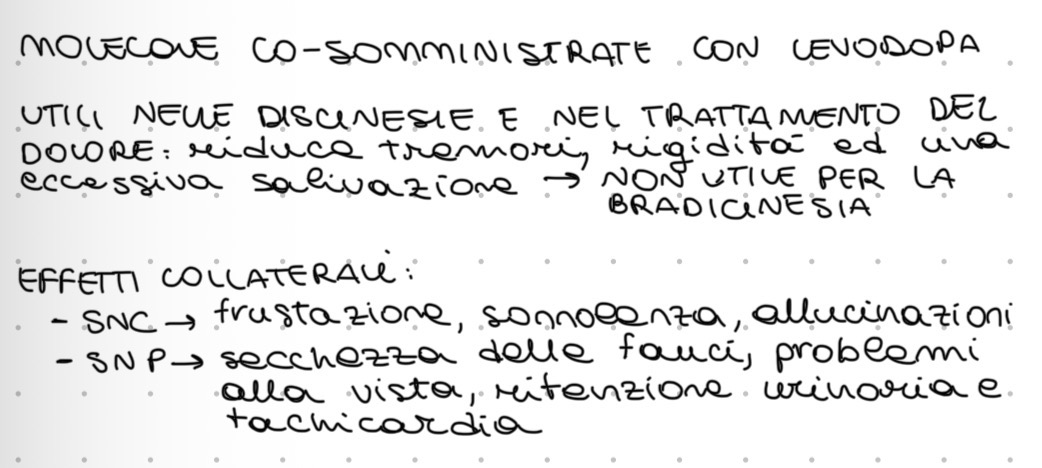 MOLECOLE CO-SOMMINISTRATE CON LEVODOPA
UTILI NELLE DISCINESIE E NEL TRATTAMENTO DEL
DOLORE: riduce tremori, rigidità ed una
eccessiva salivazione → NON UTILE PER LA
BRADICINESIA
EFFETTI COLLATERALI:
- SNC → frustazione, sonnolenza, allucinazioni
- SNP → secchezza delle fauci, problemi
alla vista, ritenzione urinaria e
tachicardia